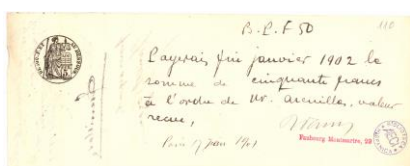 B.P.F 50
110
Payerai fin janvier 1902 la
somme de cinquante francs
à l'ordre de Mr. valeur
reçue,
Paris 1901
Faubourg Montmartre,